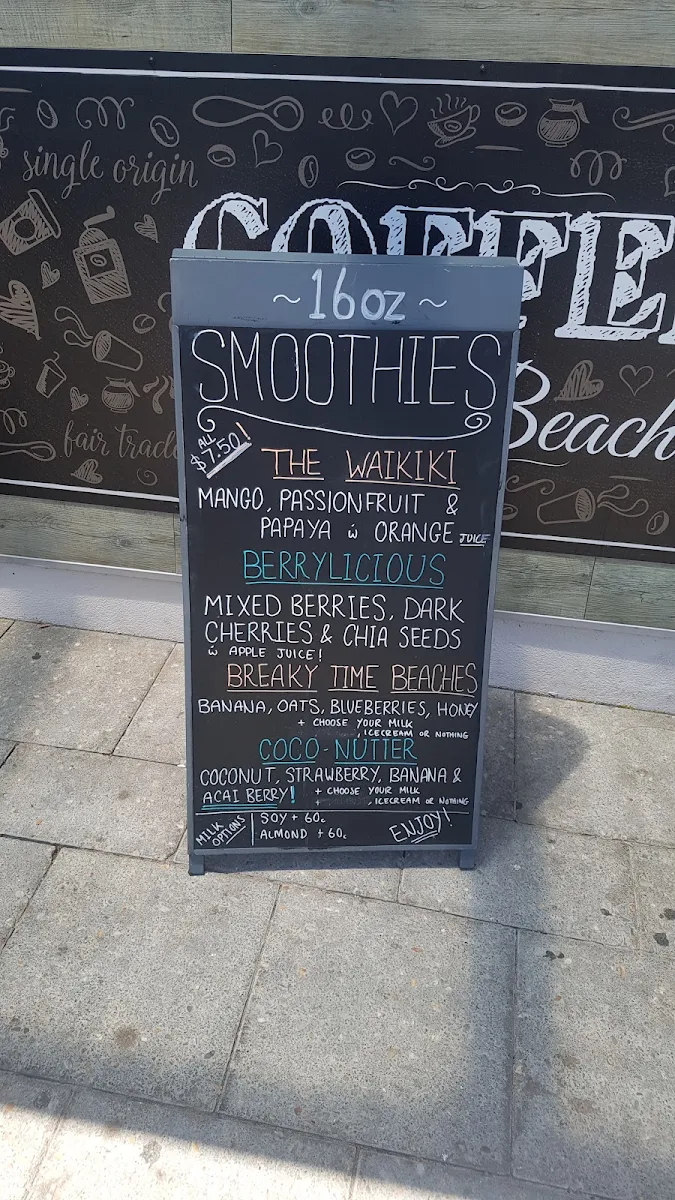 single origin
COFFEE
Beach
fair trade
~16oz~
SMOOTHIES
ALL
$7.50!
THE WAIKIKI
MANGO, PASSIONFRUIT &
PAPAYA ẃ ORANGE JUICE
BERRYLICIOUS
MIXED BERRIES, DARK
CHERRIES & CHIA SEEDS
ẃ APPLE JUICE!
BREAKY TIME BEACHES
BANANA, OATS, BLUEBERRIES, HONEY
+ CHOOSE YOUR MILK
, ICECREAM OR NOTHING
COCO-NUTTER
COCONUT, STRAWBERRY, BANANA &
ACAI BERRY! + CHOOSE YOUR MILK
, ICECREAM OR NOTHING
MILK OPTIONS
SOY + 60c
ALMOND + 60c
ENJOY!